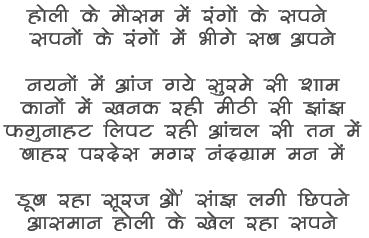 होली के मौसम में रंगों के सपने
सपनों के रंगों में भीगे सब अपने
नयनों में आंज गये सुरमे सी शाम
कानों में खनक रही मीठी सी झांझ
फगुनाहट लिपट रही आंचल सी तन में
बाहर परदेस मगर नंदग्राम मन में
डूब रहा सूरज औ' सांझ लगी छिपने
आसमान होली के खेल रहा सपने